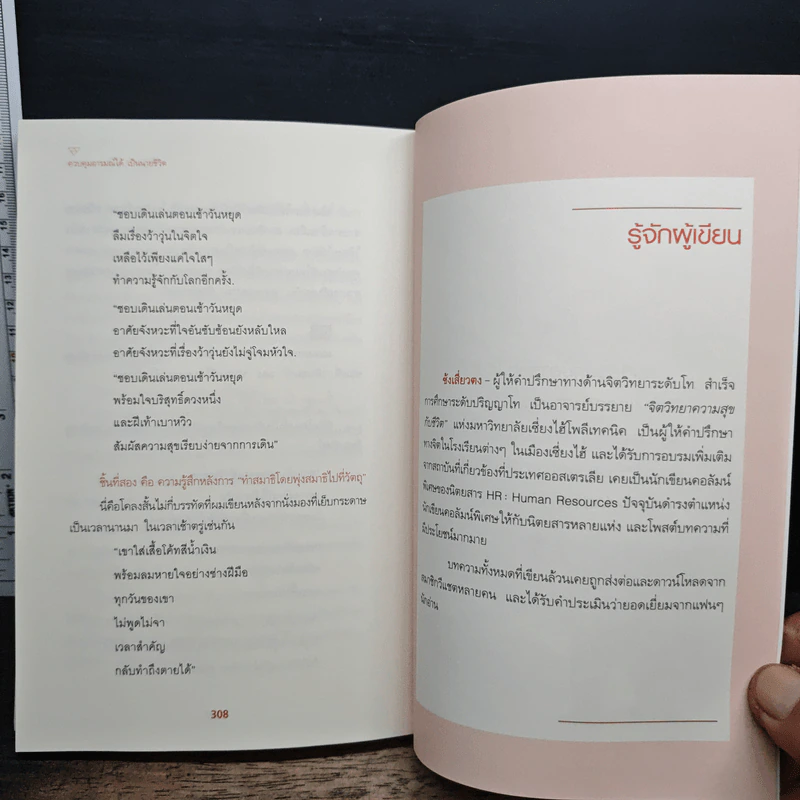 ควบคุมอารมณ์ได้ เป็นนายชีวิต
"ชอบเดินเล่นตอนเช้าวันหยุด
ลืมเรื่องว้าวุ่นในจิตใจ
เหลือไว้เพียงแค่ใจใสๆ
ทำความรู้จักกับโลกอีกครั้ง.
"ชอบเดินเล่นตอนเช้าวันหยุด
อาศัยจังหวะที่ใจอันซับซ้อนยังหลับใหล
อาศัยจังหวะที่เรื่องว้าวุ่นยังไม่จู่โจมหัวใจ.
"ชอบเดินเล่นตอนเช้าวันหยุด
พร้อมใจบริสุทธิ์ดวงหนึ่ง
และฝีเท้าเบาหวิว
สัมผัสความสุขเรียบง่ายจากการเดิน"
ชิ้นที่สอง คือ ความรู้สึกหลังการ "ทำสมาธิโดยพุ่งสมาธิไปที่วัตถุ"
นี่คือโคลงสั้นไม่กี่บรรทัดที่ผมเขียนหลังจากนั่งมองที่เย็บกระดาษ
เป็นเวลานานมา ในเวลาเช้าตรู่เช่นกัน
"เขาใส่เสื้อโค้ทสีน้ำเงิน
พร้อมลมหายใจอย่างช่างฝีมือ
ทุกวันของเขา
ไม่พูดไม่จา
เวลาสำคัญ
กลับทำถึงตายได้"
308
รู้จักผู้เขียน
ซ่งเสี่ยวตง – ผู้ให้คำปรึกษาทางด้านจิตวิทยาระดับโท สำเร็จ
การศึกษาระดับปริญญาโท เป็นอาจารย์บรรยาย "จิตวิทยาความสุข
กับชีวิต" แห่งมหาวิทยาลัยเซี่ยงไฮ้โพลีเทคนิค เป็นผู้ให้คำปรึกษา
ทางจิตในโรงเรียนต่างๆ ในเมืองเซี่ยงไฮ้ และได้รับการอบรมเพิ่มเติม
จากสถาบันที่เกี่ยวข้องที่ประเทศออสเตรเลีย เคยเป็นนักเขียนคอลัมน์
พิเศษของนิตยสาร HR : Human Resources ปัจจุบันดำรงตำแหน่ง
นักเขียนคอลัมน์พิเศษให้กับนิตยสารหลายแห่ง และโพสต์บทความที่
มีประโยชน์มากมาย
บทความทั้งหมดที่เขียนล้วนเคยถูกส่งต่อและดาวน์โหลดจาก
สมาชิกวีแชตหลายคน และได้รับคำประเมินว่ายอดเยี่ยมจากแฟนๆ
นักอ่าน